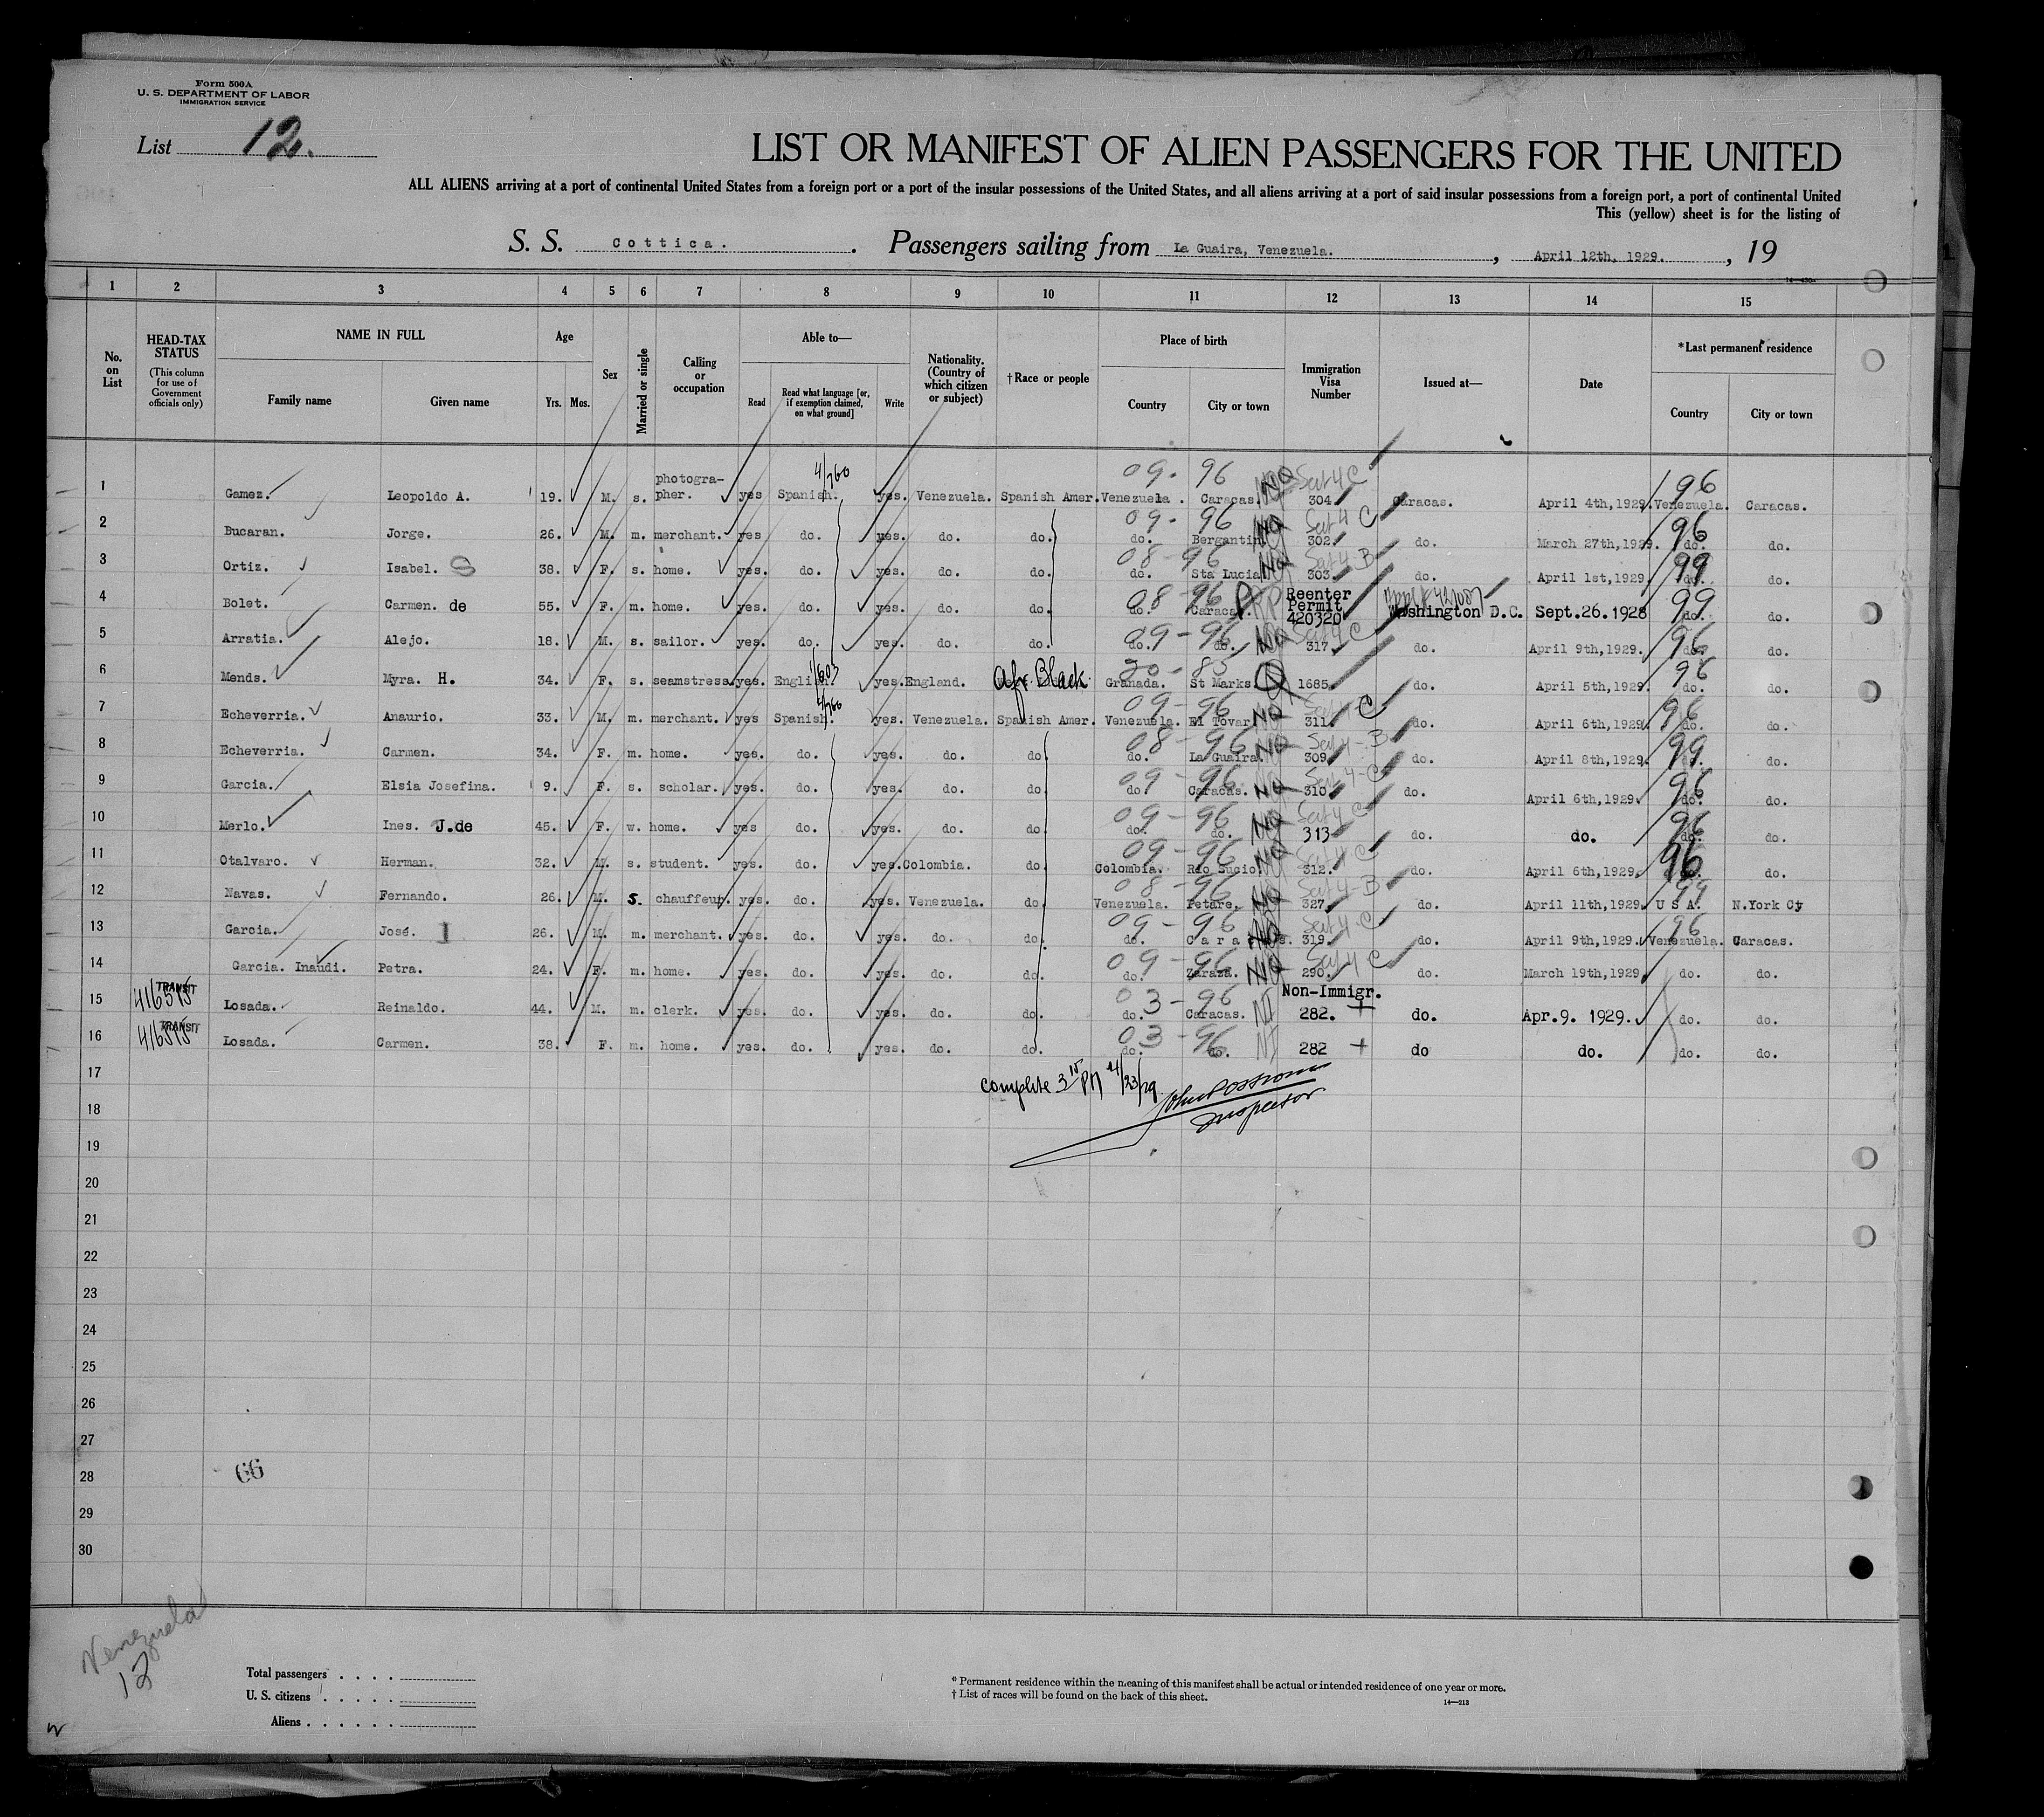 Form 500A
U. S. DEPARTMENT OF LABOR
IMMIGRATION SERVICE
List 12.
LIST OR MANIFEST OF ALIEN PASSENGERS FOR THE UNITED
ALL ALIENS arriving at a port of continental United States from a foreign port or a port of the insular possessions of the United States, and all aliens arriving at a port of said insular possessions from a foreign port, a port of continental United
This (yellow) sheet is for the listing of
S. S. Cottica. Passengers sailing from La Guaira, Venezuela. , April 12th, 1929. , 19
1 2 3 4 5 6 7 8 9 10 11 12 13 14 15
No. on List
HEAD-TAX STATUS
(This column for use of Government officials only)
NAME IN FULL
Family name Given name
Age
Yrs. Mos.
Sex
Married or single
Calling or occupation
Able to—
Read
Read what language [or, if exemption claimed, on what ground]
Write
Nationality. (Country of which citizen or subject)
†Race or people
Place of birth
Country City or town
Immigration Visa Number
Issued at—
Date
*Last permanent residence
Country City or town
1 Gamez. Leopoldo A. 19. M. s. photogra-pher. yes Spanish. yes. Venezuela. Spanish Amer. Venezuela. Caracas. 304 Caracas. April 4th, 1929. Venezuela. Caracas.
2 Bucaran. Jorge. 26. M. m. merchant. yes do. yes. do. do. do. Bergantin 302 do. March 27th, 1929. do. do.
3 Ortiz. Isabel. S 38. F. s. home. yes. do. yes. do. do. do. Sta Lucia 303 do. April 1st, 1929. do. do.
4 Bolet. Carmen. de 55. F. m. home. yes. do. yes. do. do. do. Caracas. Reenter Permit 420320 Washington D.C. Sept. 26. 1928 do. do.
5 Arratia. Alejo. 18. M. s. sailor. yes. do. yes. do. do. do. do. 317 do. April 9th, 1929. do. do.
6 Mends. Myra. H. 34. F. s. seamstress. yes. English. yes. England. Afr. Black Granada. St Marks. 1685 do. April 5th, 1929. do. do.
7 Echeverria. Anaurio. 33. M. m. merchant. yes Spanish. yes. Venezuela. Spanish Amer. Venezuela. El Tovar 311 do. April 6th, 1929. do. do.
8 Echeverria. Carmen. 34. F. m. home. yes. do. yes. do. do do. La Guaira. 309 do. April 8th, 1929. do. do.
9 Garcia. Elsia Josefina. 9. F. s. scholar. yes. do. yes. do. do do Caracas. 310 do. April 6th, 1929. do. do.
10 Merlo. Ines. J.de 45. F. w. home. yes do. yes. do. do do. do. 313 do. do. do. do.
11 Otalvaro. Herman. 32. M. s. student. yes. do. yes. Colombia. do Colombia. Rio Sucio. 312. do. April 6th, 1929. do.
12 Navas. Fernando. 26. M. s. chauffeur. yes. do. yes. Venezuela. do Venezuela. Petare. 327. do. April 11th, 1929. U S A. N.York Cy
13 Garcia. José. 26. M. m. merchant. yes. do. yes. do. do. do. Caracas. 319. do. April 9th, 1929. Venezuela. Caracas.
14 Garcia. Inaudi. Petra. 24. F. m. home. yes. do. yes. do. do. do. Zaraza. 290. do. March 19th, 1929. do. do.
15 TRANSIT Losada. Reinaldo. 44. M. m. clerk. yes. do. yes. do. do. do. Caracas. Non-Immigr. 282. do. Apr. 9. 1929. do. do.
16 TRANSIT Losada. Carmen. 38. F. m. home. yes. do. yes. do. do. do. do. 282 do do. do. do.
17 complete 3 15 PM 4/23/29
Inspector
18
19
20
21
22
23
24
25
26
27
28 66
29
30
Venezuela
12
Total passengers
U. S. citizens
Aliens
* Permanent residence within the meaning of this manifest shall be actual or intended residence of one year or more.
† List of races will be found on the back of this sheet.
14—213